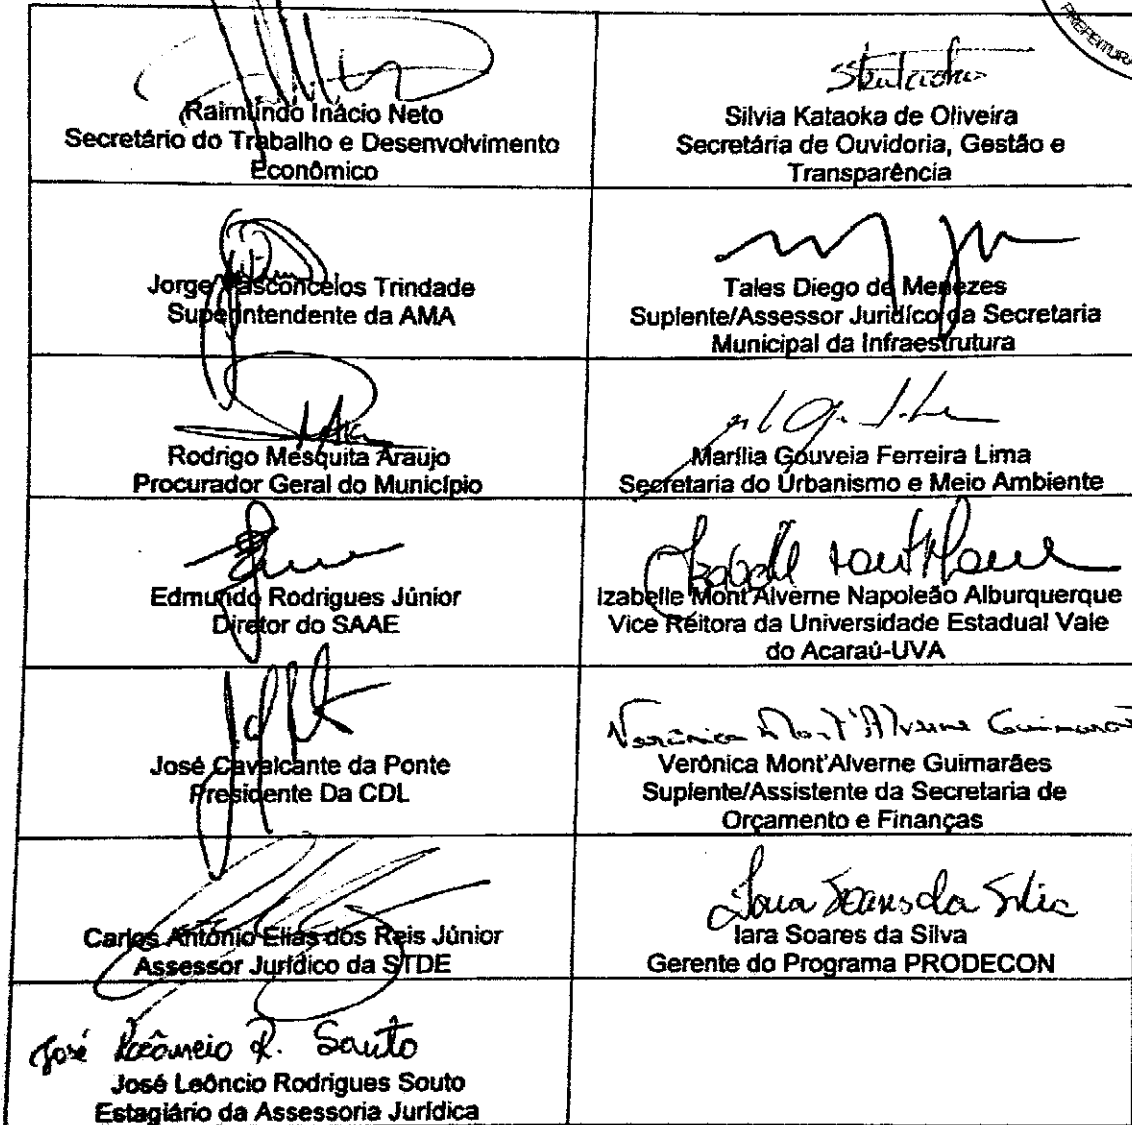 PREFEITURA
Raimundo Inácio Neto
Secretário do Trabalho e Desenvolvimento
Econômico
Silvia Kataoka de Oliveira
Secretária de Ouvidoria, Gestão e
Transparência
Jorge Vasconcelos Trindade
Superintendente da AMA
Tales Diego de Menezes
Suplente/Assessor Jurídico da Secretaria
Municipal da Infraestrutura
Rodrigo Mesquita Araujo
Procurador Geral do Município
Marília Gouveia Ferreira Lima
Secretaria do Urbanismo e Meio Ambiente
Edmundo Rodrigues Júnior
Diretor do SAAE
Izabelle Mont'Alverne Napoleão Alburquerque
Vice Reitora da Universidade Estadual Vale
do Acaraú-UVA
José Cavalcante da Ponte
Presidente Da CDL
Verônica Mont'Alverne Guimarães
Verônica Mont'Alverne Guimarães
Suplente/Assistente da Secretaria de
Orçamento e Finanças
Carlos Antônio Elias dos Reis Júnior
Assessor Jurídico da STDE
Iara Soares da Silva
Iara Soares da Silva
Gerente do Programa PRODECON
José Leôncio R. Souto
José Leôncio Rodrigues Souto
Estagiário da Assessoria Jurídica